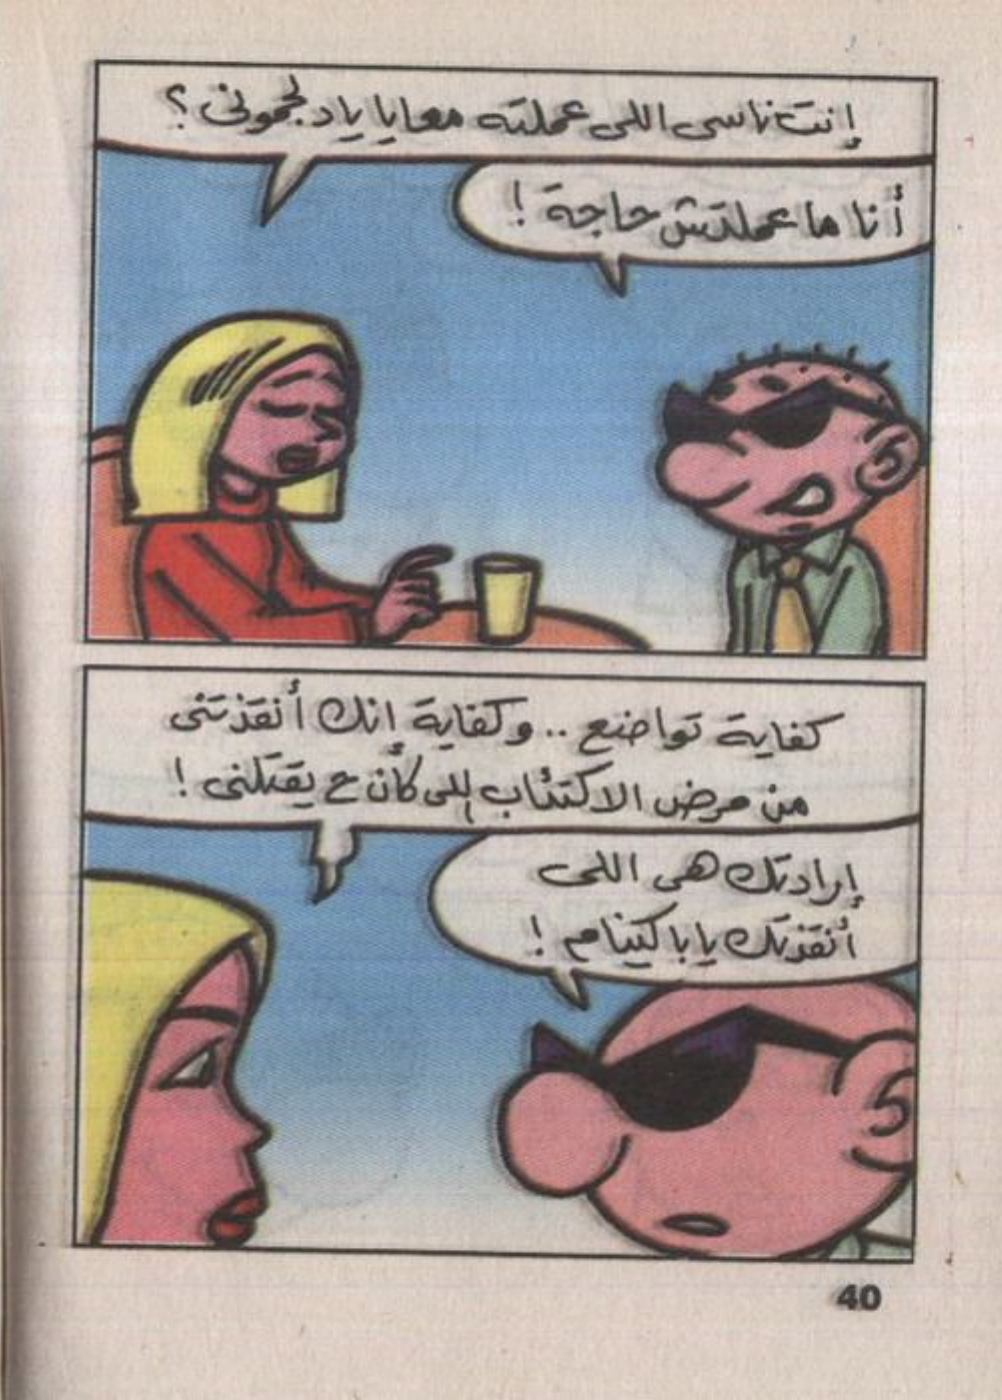 إنت ناسى اللى عملته معايا ياد لجمونى؟
أنا ما عملتش حاجة!
كفاية تواضع .. وكفاية إنك أنقذتنى
من مرض الاكتئاب اللى كان ح يقتلنى!
إرادتك هى اللى
أنقذتك يا باكينام!
40